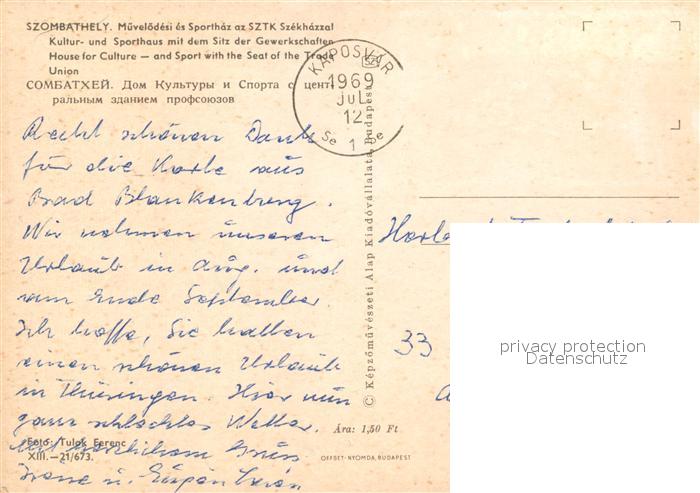 SZOMBATHELY. Művelődési és Sportház az SZTK Székházzal
Kultur- und Sporthaus mit dem Sitz der Gewerkschaften
House for Culture — and Sport with the Seat of the Trade
Union
СОМБАТХЕЙ. Дом Культуры и Спорта с цент-
ральным зданием профсоюзов
KAPOSVÁR
1969
JUL
12
1
Recht schönen Dank
für die Karte aus
Bad Blankenburg.
Wir nehmen unseren
Urlaub in Aug. und
am Ende September.
Ich hoffe, Sie hatten
einen schönen Urlaub
in Thüringen. Hier nun
ganz schlechtes Wetter.
Mit herzlichem Gruss
Foto: Tulok Ferenc
XIII.—21/673.
Ára: 1,50 Ft
OFFSET-NYOMDA, BUDAPEST
© Képzőművészeti Alap Kiadóvállalata, Budapest
33
privacy protection
Datenschutz